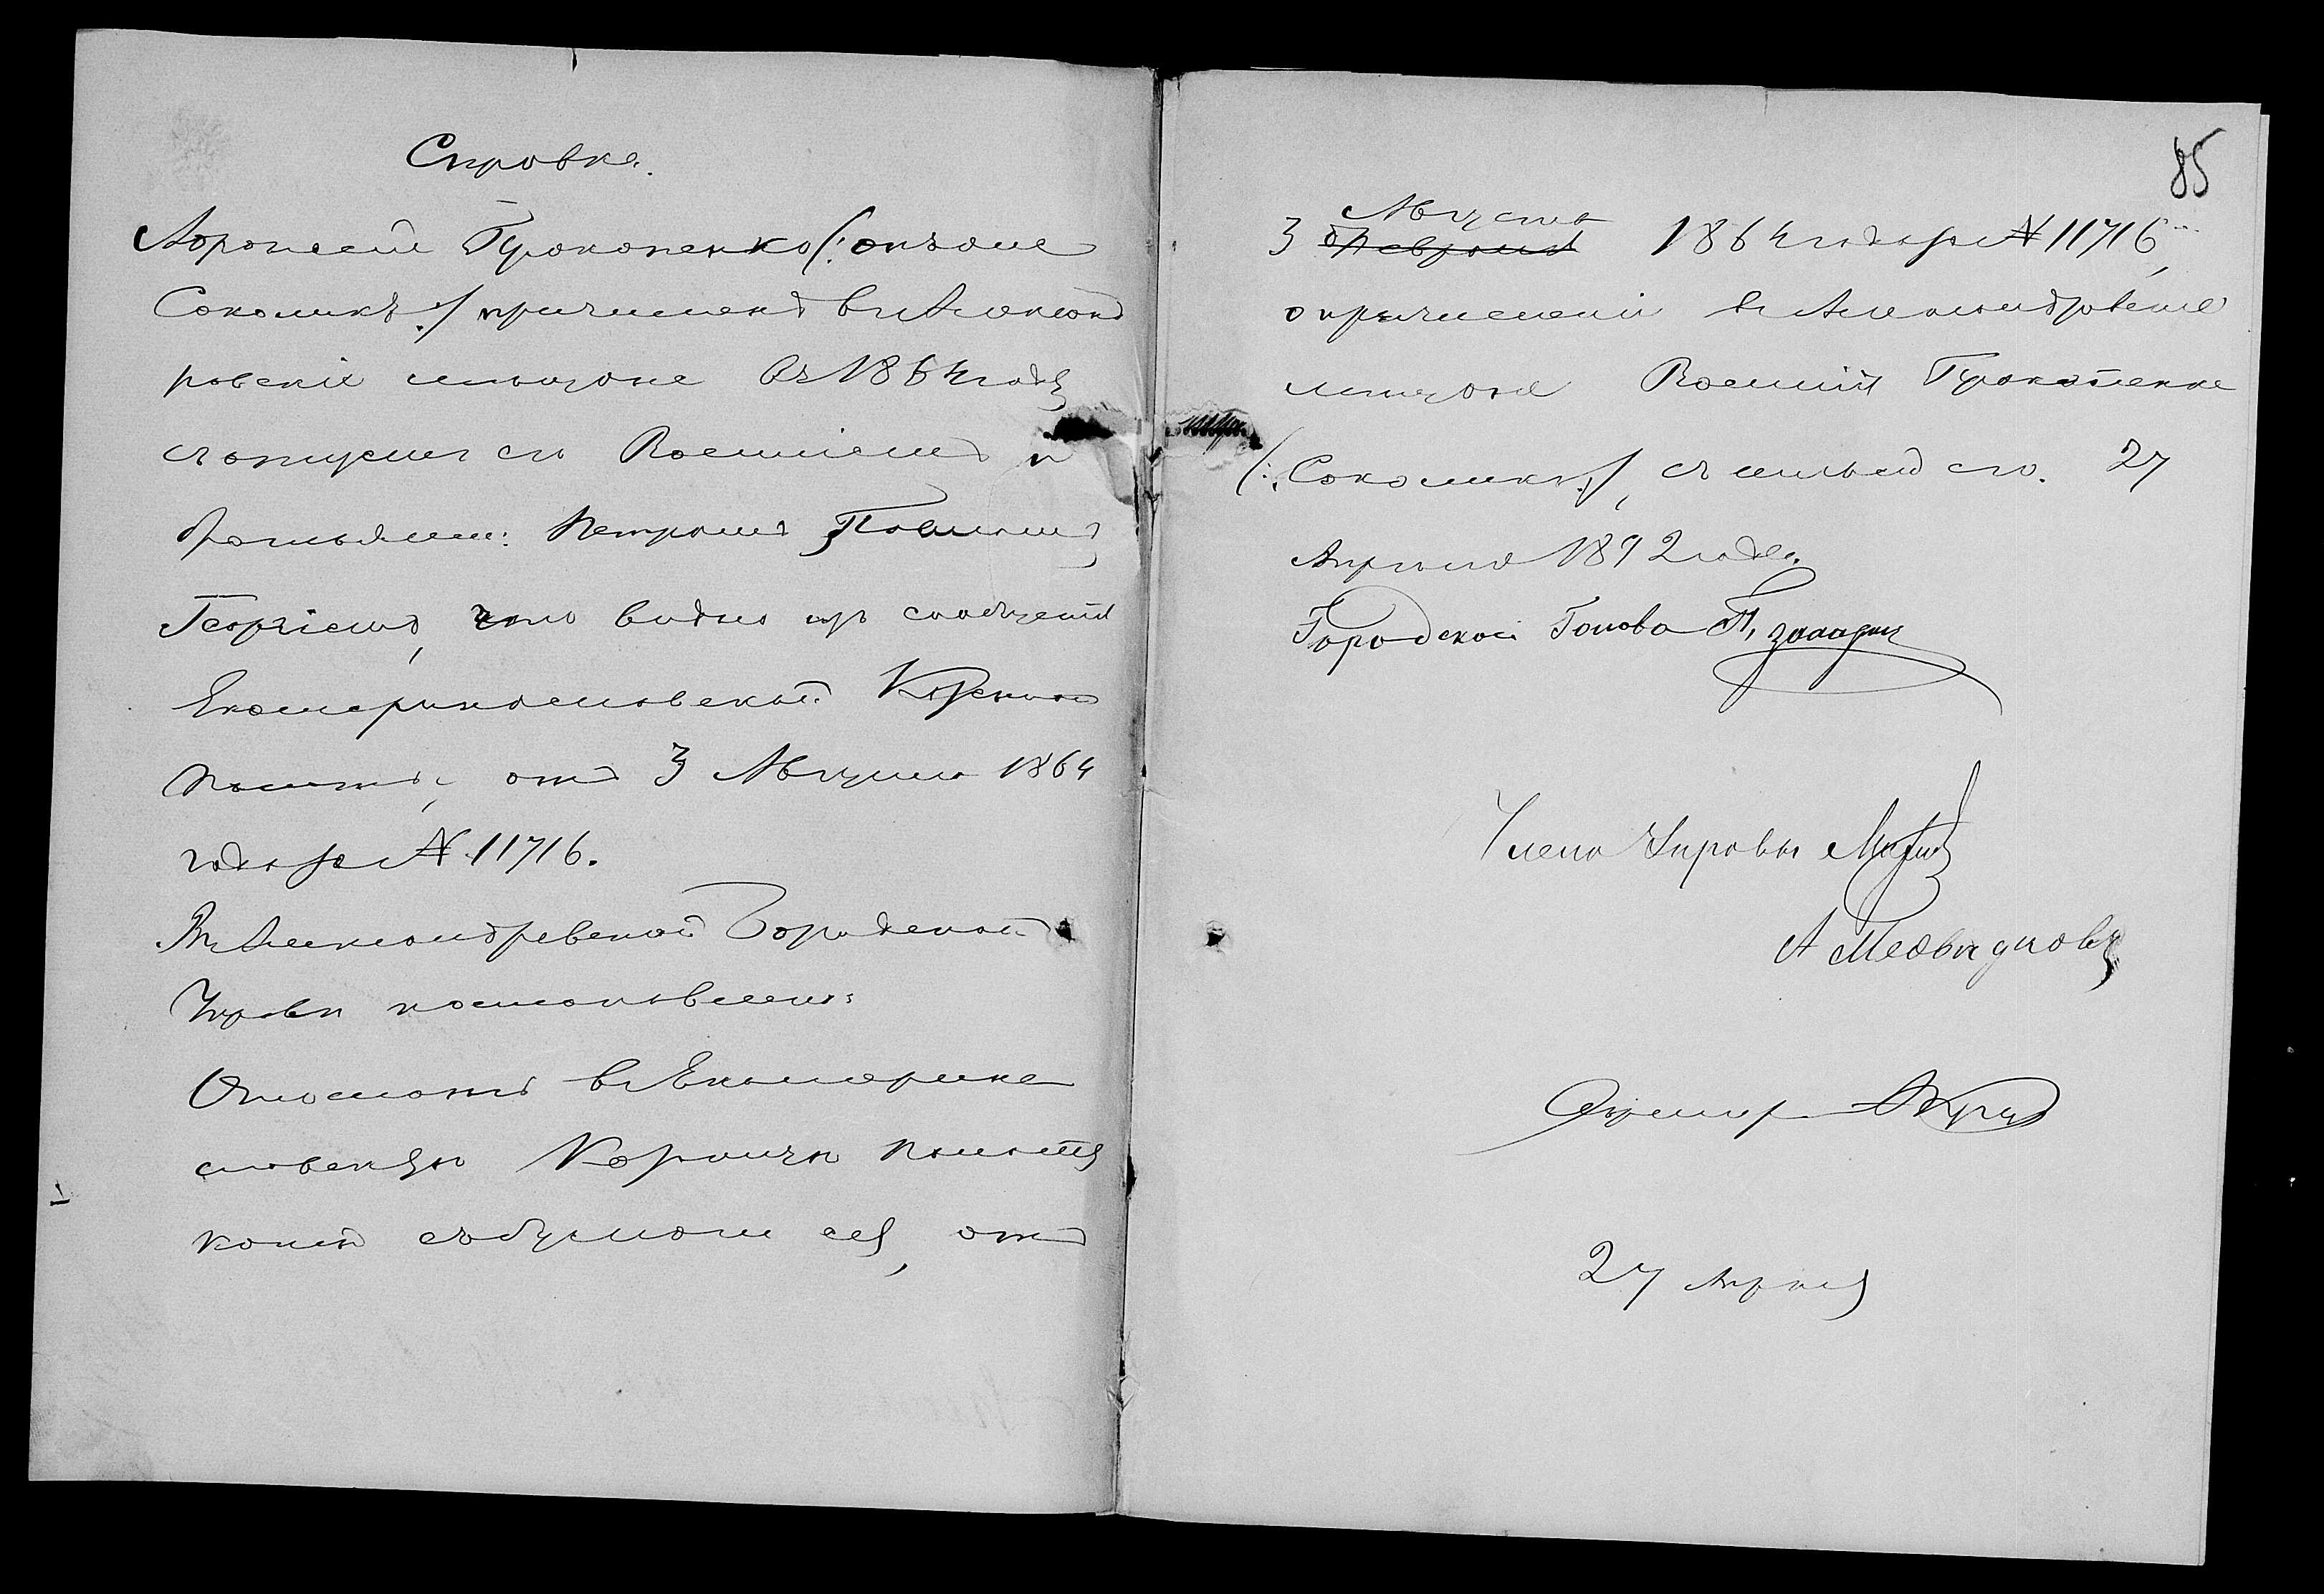 Справка.
Афанасій Прокопенко (: онъ же
Соколикъ :) причисленъ въ Александ
ровскіе мещане въ 1864 году
съ отцемъ его Василіемъ и
братьями: Петромъ, Павломъ,
Георгіемъ, что видно изъ сообщенія
Екатеринославской Казенной
Палаты, отъ 3 Августа 1864
года за № 11716.
Въ Александровской Городской
Управѣ постановлено:
Отослать въ Екатерино
славскую Казенную Палату
копію съ бумаги ея, отъ
85
Августа
3 Февраля 1864 года за № 11716,
о причисленіи въ Александровскіе
мещане Василія Прокопенко
(: Соколика :), съ семьей его. 27
Апрѣля 1892 года.
Городской Голова
Члены Управы
А Медвѣдковъ
Секретарь
27 Апрѣля